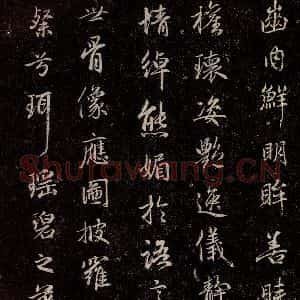 齒内鮮明眸善睞
權瓌姿艷逸儀靜
情綽態媚於語言
世骨像應圖披羅
粲兮珥瑤碧之華
Shufawang.CN